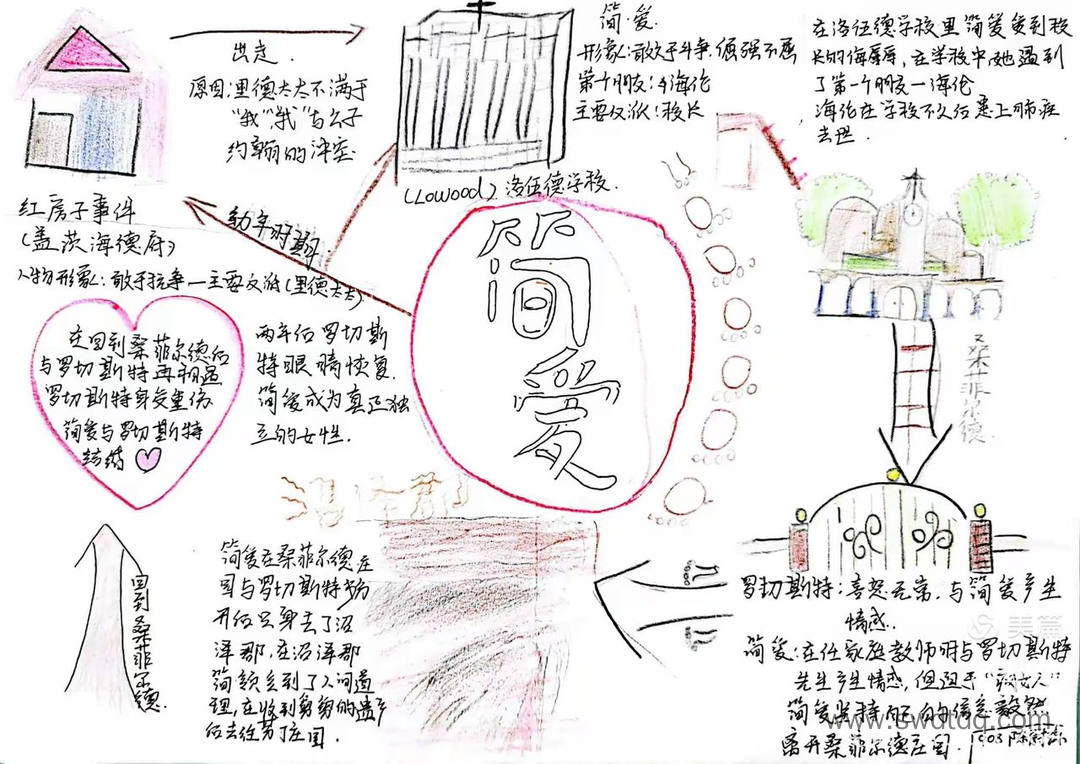 出走
原因:里德太太不满于
"我""我"与公子
约翰的冲突
简·爱.
形象:敢于斗争.倔强不屈
第一个朋友:海伦
主要反派:校长
在洛伍德学校里简爱受到校
长的侮辱,在学校中她遇到
了第一个朋友—海伦
海伦在学校不久后患上肺疾
去世.
(Lowood)洛伍德学校.
红房子事件
(盖茨海德府)
幼年时期
人物形象:敢于抗争—主要反派(里德太太)
简爱
在回到桑菲尔德后
与罗切斯特再相遇
罗切斯特身受重伤
简爱与罗切斯特
结婚
两年后罗切斯
特眼睛恢复.
简爱成为真正独
立的女性.
桑菲尔德.
沼泽郡
回到桑菲尔德.
简爱在桑菲尔德庄
园与罗切斯特分
开后只身去了沼
泽郡,在沼泽郡
简爱到了人间道
理,在收到舅舅的遗产
后去往芬丁庄园.
罗切斯特:喜怒无常,与简爱产生
情感.
简爱:在任家庭教师时与罗切斯特
先生产生情感,但迫于"疯女人"
简爱坚持内心的信念毅然
离开桑菲尔德庄园.
美篇